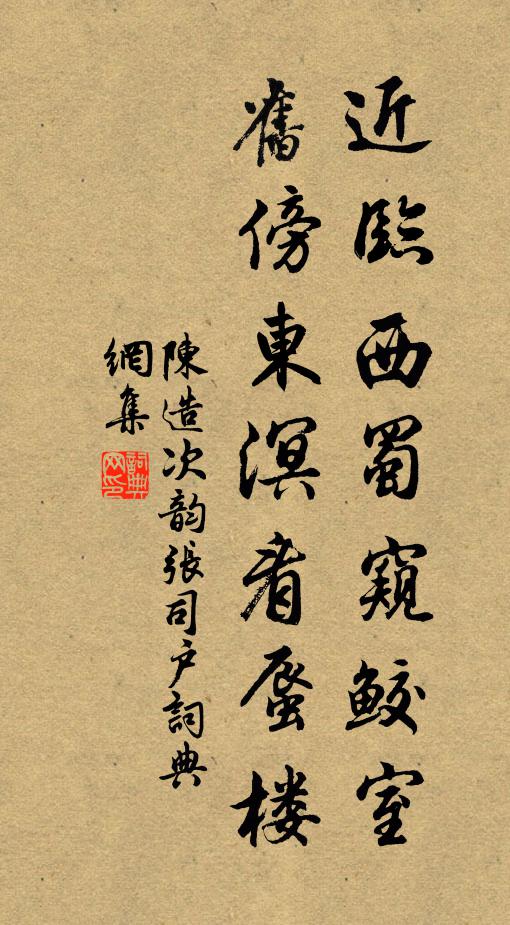 近臨西蜀窺鮫室
舊傍東溟看蜃楼
陳造次韵張司户詞典
網集
詞典网印